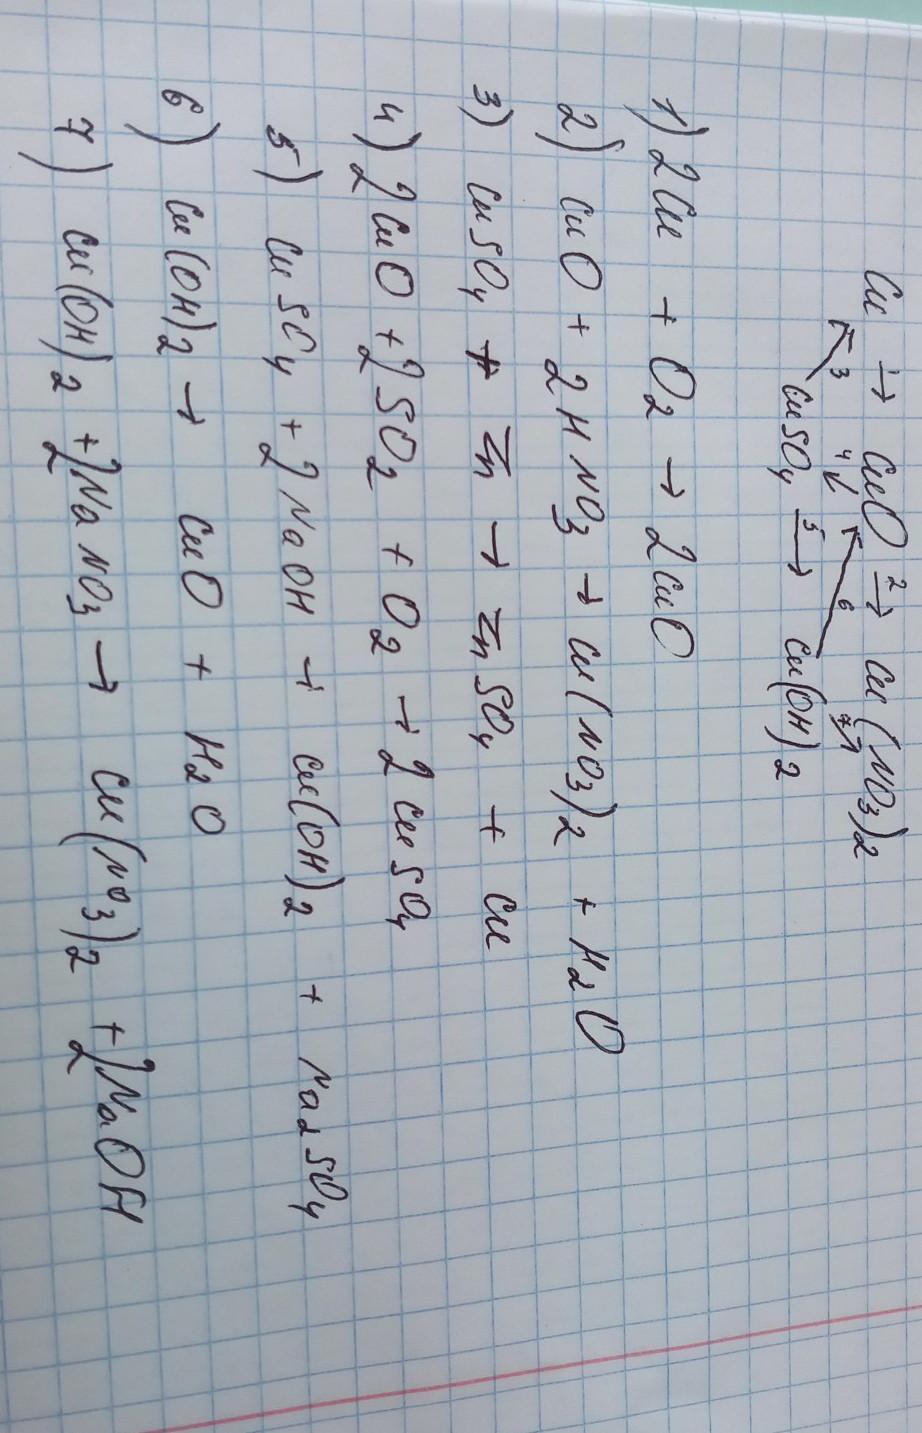 Cu →¹ CuO →² Cu(NO3)2
↖3 CuSO4 4↙ →⁵ Cu(OH)2 ↖6 7↗
1) 2Cu + O2 → 2CuO
2) CuO + 2HNO3 → Cu(NO3)2 + H2O
3) CuSO4 + Zn → ZnSO4 + Cu
4) 2CuO + 2SO2 + O2 → 2CuSO4
5) CuSO4 + 2NaOH → Cu(OH)2 + Na2SO4
6) Cu(OH)2 → CuO + H2O
7) Cu(OH)2 + 2NaNO3 → Cu(NO3)2 + 2NaOH